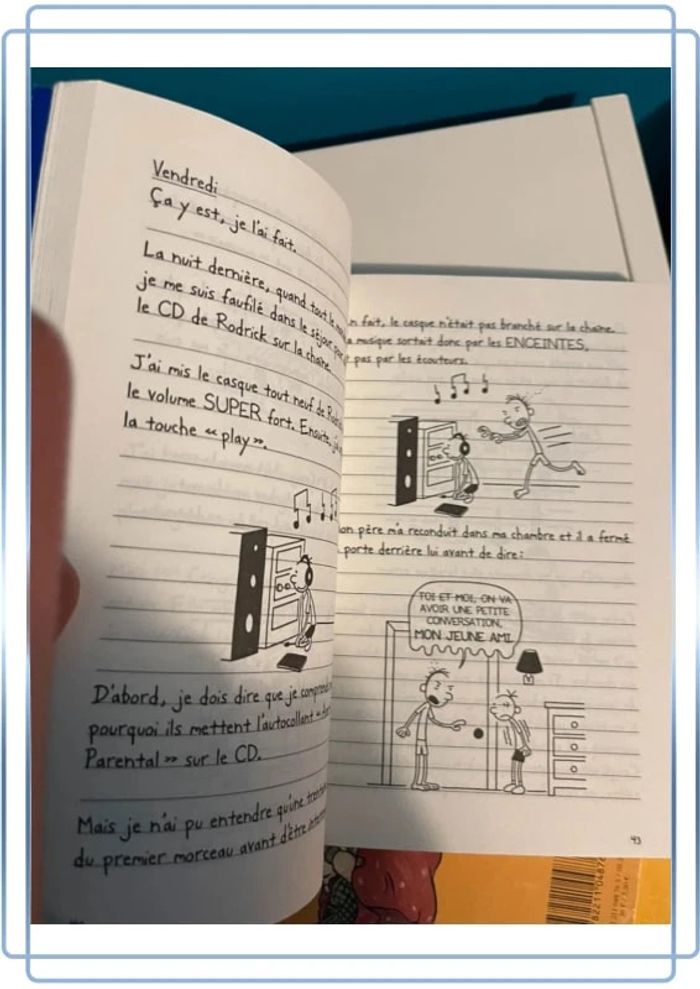 Vendredi
Ça y est, je l'ai fait.
La nuit dernière, quand tout le
je me suis faufilé dans le séjour
le CD de Rodrick sur la chaîne.
J'ai mis le casque tout neuf de
le volume SUPER fort. Ensuite,
la touche « play ».
D'abord, je dois dire que je
pourquoi ils mettent l'autocollant
Parental » sur le CD.
Mais je n'ai pu entendre qu'une
du premier morceau avant d'être
n fait, le casque n'était pas branché sur la chaîne.
a musique sortait donc par les ENCEINTES,
t pas par les écouteurs.
on père m'a reconduit dans ma chambre et il a fermé
porte derrière lui avant de dire :
TOI ET MOI, ON VA
AVOIR UNE PETITE
CONVERSATION,
MON JEUNE AMI.
43